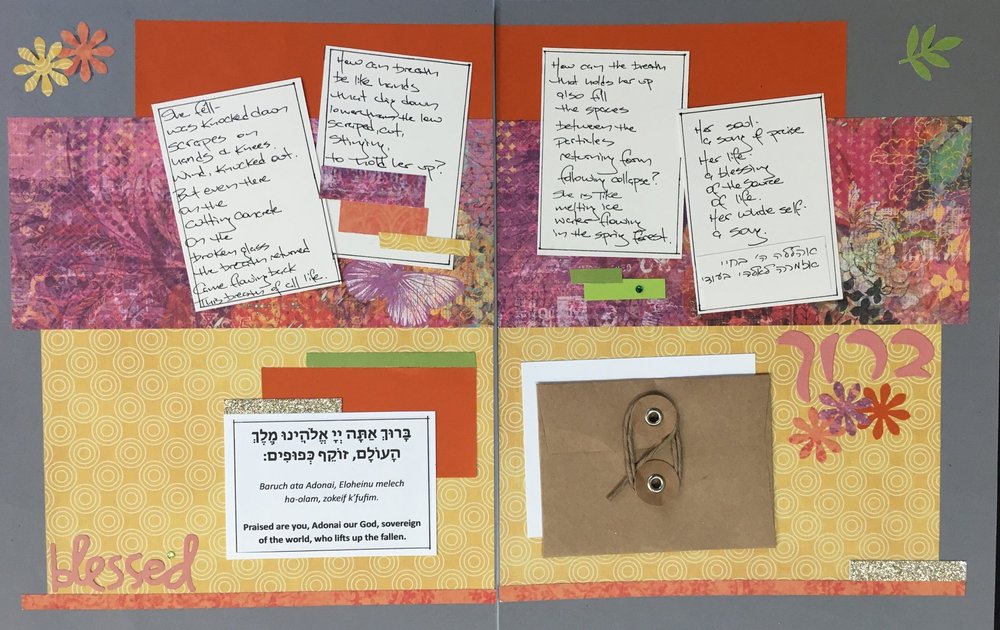 She fell-
was knocked down
scrapes on
hands & knees.
Wind knocked out.
But even there
on the
cutting concrete
on the
broken glass
the breath returned
came flowing back
This breath of all life.
How can breath
be like hands
that dip down
lower than the low
scraped, cut,
stinging,
to hold her up?
How can the breath
that holds her up
also fill
the spaces
between the
particles
returning form
following collapse?
She is like
melting ice
water flowing
in the spring forest.
Her soul-
a song of praise
Her life-
a blessing
of the source
of life.
Her whole self-
a song.
אהללה ה׳ בחיי
אזמרה לאלהי בעודי
בָּרוּךְ אַתָּה יְיָ אֱלֹהֵינוּ מֶלֶךְ
הָעוֹלָם, זוֹקֵף כְּפוּפִים:
Baruch ata Adonai, Eloheinu melech
ha-olam, zokeif k'fufim.
Praised are you, Adonai our God, sovereign
of the world, who lifts up the fallen.
blessed
ברוך